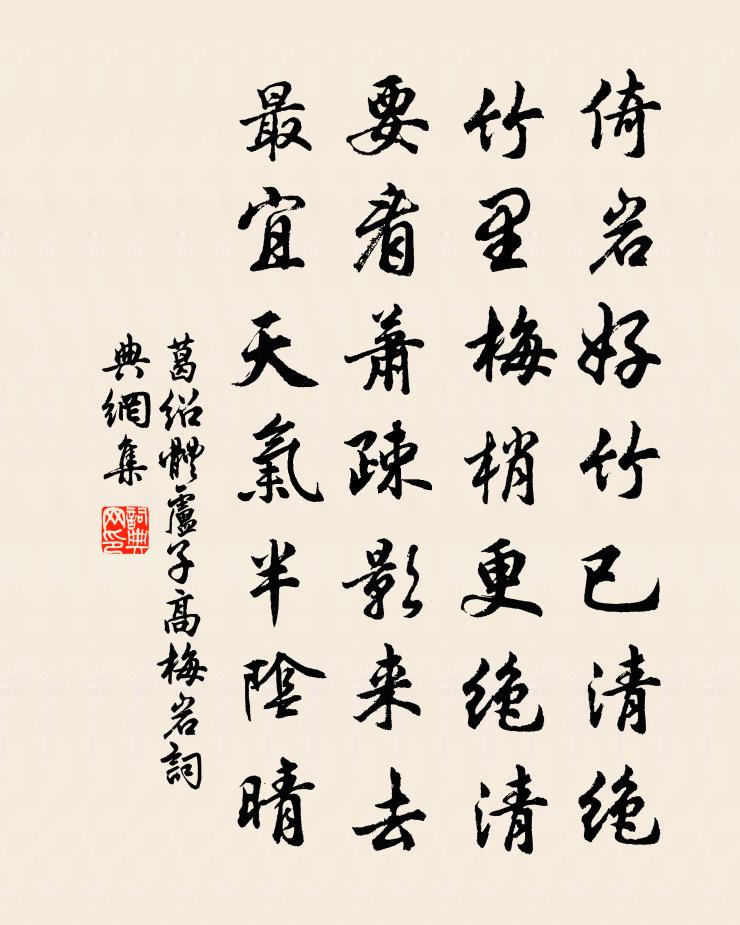 倚岩好竹已清绝
竹里梅梢更绝清
要看萧疎影来去
最宜天氣半陰晴
葛绍體盧子高梅岩詞
典網集
詞典网印